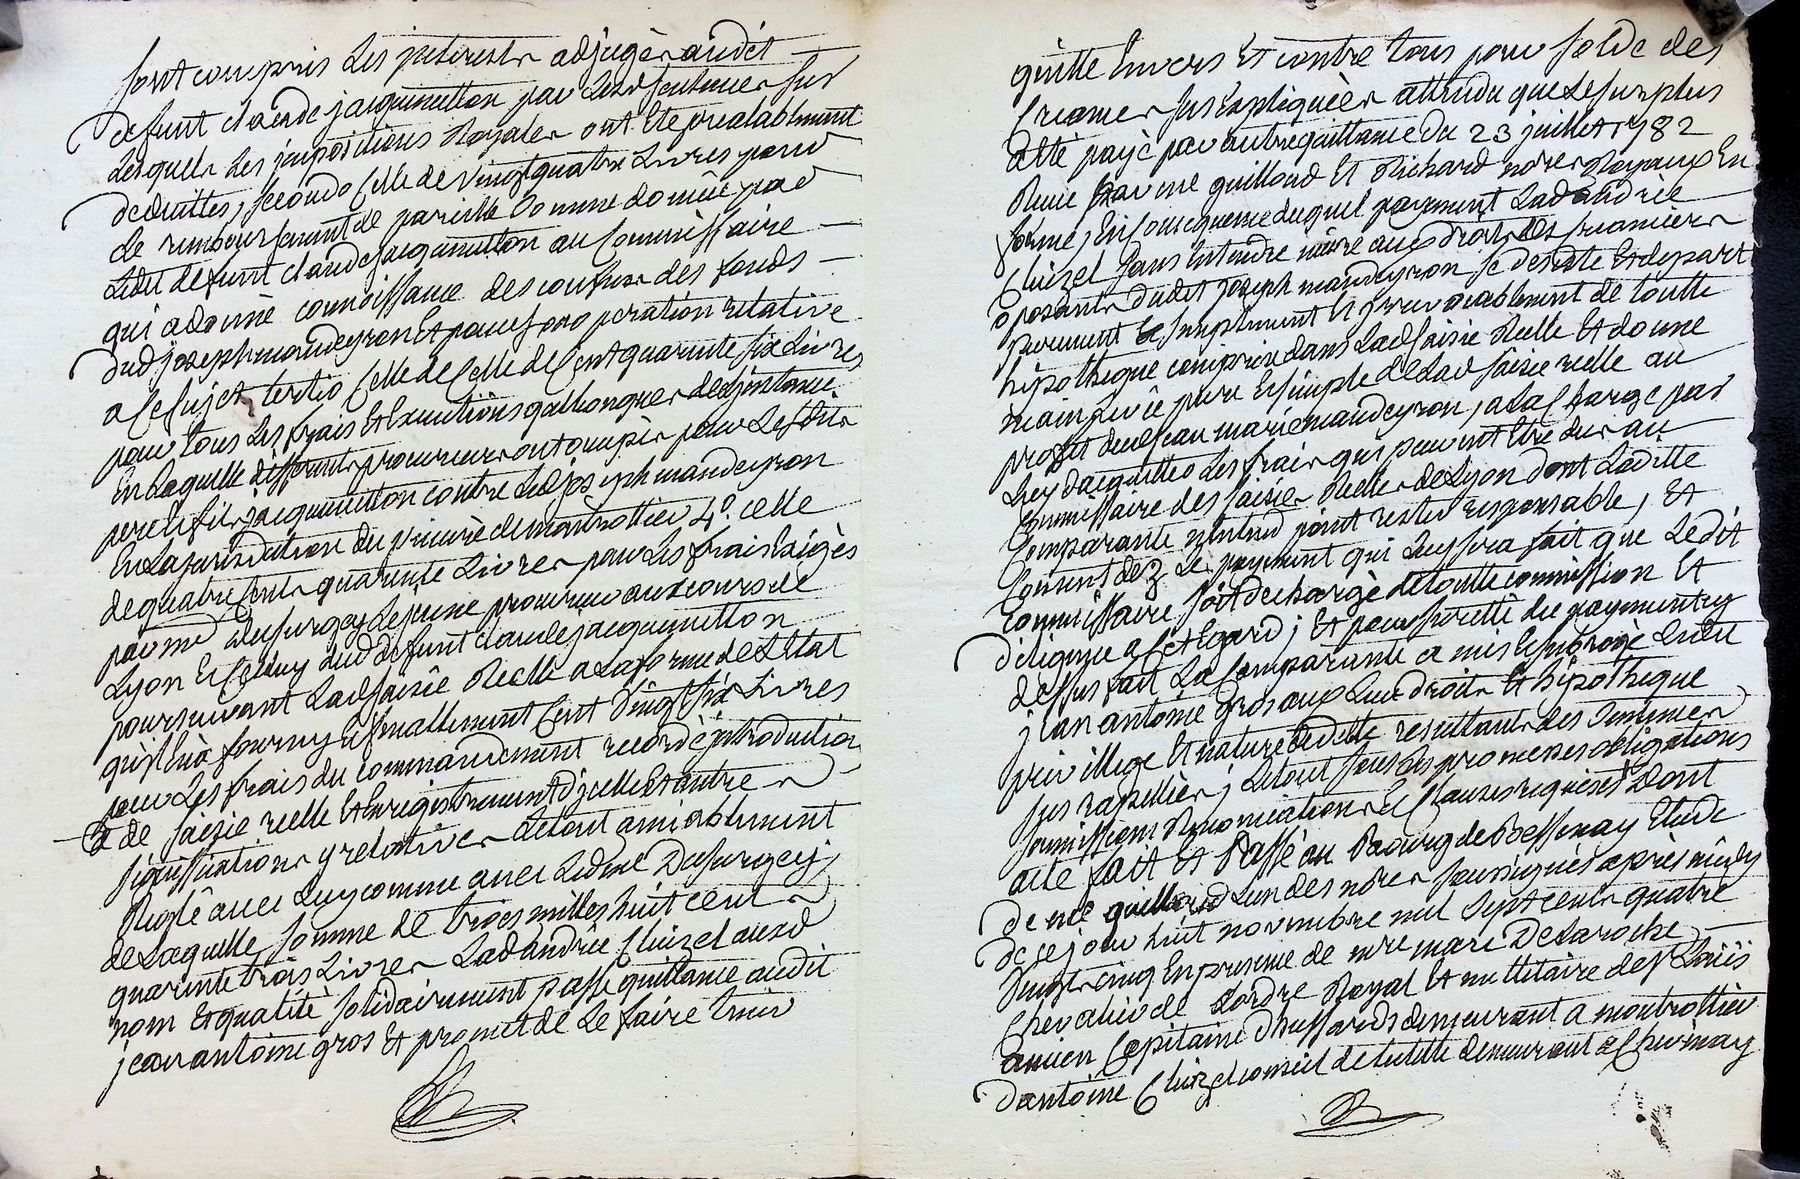 sont compris Les jnterests adjugés audit
defunt claude jacquemetton par Lesd sentences sur
Lesquels Les jmpositions Royales ont été prealablement
deduittes, secondo celle de vingt quatre Livres pour
Le remboursement de pareille somme donnée par
Ledit defunt claude jacquemetton au commissaire
qui a donné connoissance des des fonds
dud joseph mandeyron Et pour son operation relative
a ce sujet, tertio celle de celle de Cent quarante six Livres
pour tous Les frais Et Executions qu'elconques de Linstance
En Laquelle differents procureurs ont occupés pour Lesdits
pere Et fils jacquemetton contre Led joseph mandeyron
En La jurisdiction du prieuré de montrottier 4°. celle
de quatre Cents quarante Livres pour Les frais Exigés
par me Dusurgey Lejeune procureur aux cours de
Lyon Et celluy dud defunt claude jacquemetton
poursuivant Lad saisie Reelle a La forme de L'Etat
qu'il En a fourny Et finallement Cent vingt six Livres
pour Les frais du commandement recordé jntroduction
& de saisie reelle Et Enregistrement d'jcelle Et autres
significations y relatives Le tout amiablement
Reglé avec Luy comme avec Ledit me Dusurgey;
de Laquelle somme de trois milles huit cent
quarante trois Livres Lad andrée Cluzel aux d
nom Et qualité solidairement passe quittance audit
jean antoine gros Et promet de Le faire tenir
quitte Envers Et contre tous pour solde des
Creances sus Expliquées attendu que Le surplus
a été payé par autre quittance du 23 juillet 1782
Reçue par me guilloud Et Richard nores Royaux En
forme; En consequence duquel payement Lad andrée
Cluzel sans Entendre nuire aux droits des creanciers
oposants dudit joseph mandeyron se desiste Et depart
purement Et simplement Et jrrevocablement de toutte
hipotheque comprise dans Lad saisie Reelle Et donne
main levée pure Et simple de Lad saisie reelle au
profit dud jean marie mandeyron, a La charge par
Luy d'acquitter Les frais qui peuvent être dus au
Commissaire des saisies Reelles de Lyon dont Laditte
Comparante n'entend point rester responsable, Et
Consent Le payement qui Luy sera fait que Ledit
Commissaire soit dechargé de toutte commission Et
diligence a cet Egard; Et pour sureté du payement cy
dessus fait La Comparante a mis Et subrogé Ledit
jean antoine gros aux Lieu droits Et hipotheque
privillege Et nature de dette resultants des sommes
sus rapellées; Le tout sous Les promesses obligations
soumissions Renonciations Et Clauses requises Dont
acte fait Et Passé au Bourg de Bessenay Etude
de me guilloud L'un des nores soussignés après midy
de ce jour huit novembre mil sept cents quatre
Vingts cinq En presence de mre marc De Laroche
Chevalier de L'ordre Royal Et millitaire de st Loüis
ancien Capitaine d'hussards demeurant a montrottier
d'antoine Cluzel conseil de tutelle demeurant a Chevinay